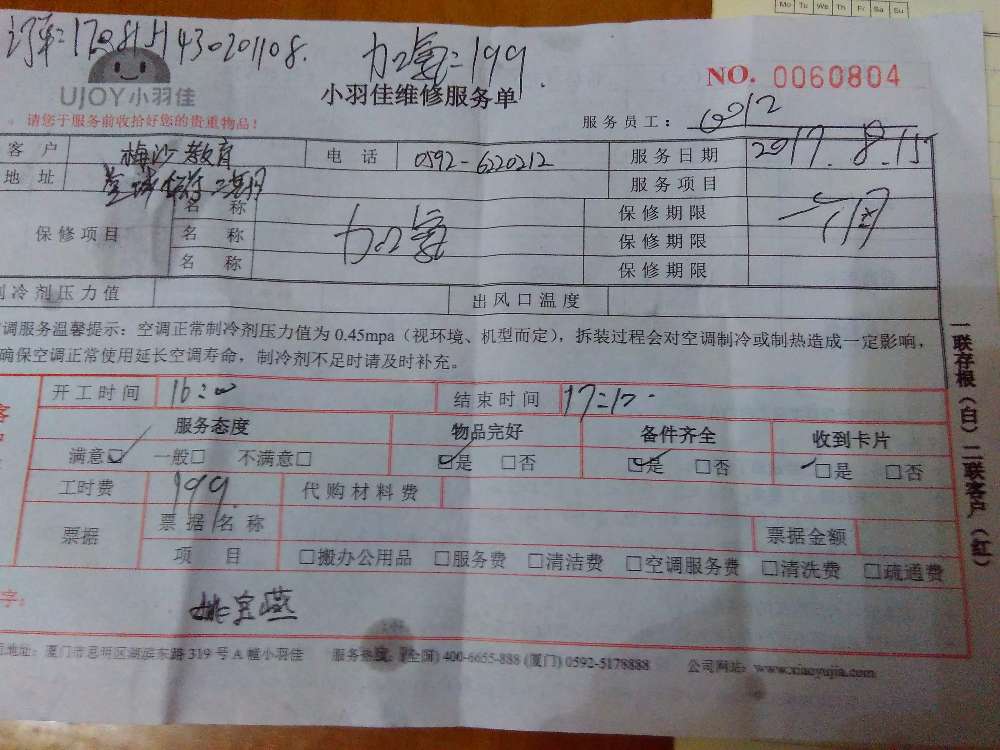 Mo Tu We Th Fr Sa Su
加氟=199.
NO. 0060804
UJOY 小羽佳
小羽佳维修服务单
请您于服务前收拾好您的贵重物品！
服务员工：6012
客户 梅沙教育 电话 0592-620212 服务日期 2017.8.15
地址 服务项目
名称 保修期限
保修项目 名称 加氟 保修期限 一个月
名称 保修期限
制冷剂压力值 出风口温度
调服务温馨提示：空调正常制冷剂压力值为 0.45mpa（视环境、机型而定），拆装过程会对空调制冷或制热造成一定影响，
确保空调正常使用延长空调寿命，制冷剂不足时请及时补充。
开工时间 16:00 结束时间 17:10
服务态度 物品完好 备件齐全 收到卡片
满意☑ 一般□ 不满意□ ☑是 □否 ☑是 □否 ☑是 □否
工时费 199 代购材料费
票据 票据名称 票据金额
项目 □搬办公用品 □服务费 □清洁费 □空调服务费 □清洗费 □疏通费
字：
姚宝燕
地址：厦门市思明区湖滨东路 319 号 A 幢小羽佳 服务热线：(全国) 400-6655-888 (厦门) 0592-5178888 公司网站：www.xiaoyujia.com
一联存根（白）二联客户（红）